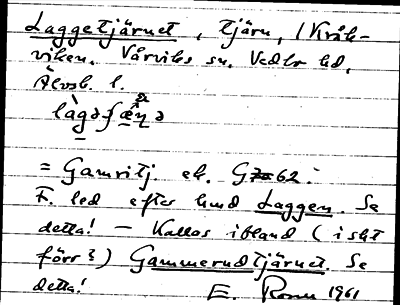 Laggetjärnet, tjärn, / Kråk-
viken. Vårviks sn. Vedbo hd,
Älvsb. l.
= Gamritj. ek. G 62:
F. led efter hmd Laggen. Se
detta! – Kallas ibland (i sht
förr?) Gammerudtjärnet. Se
detta! E. Rosen 1961